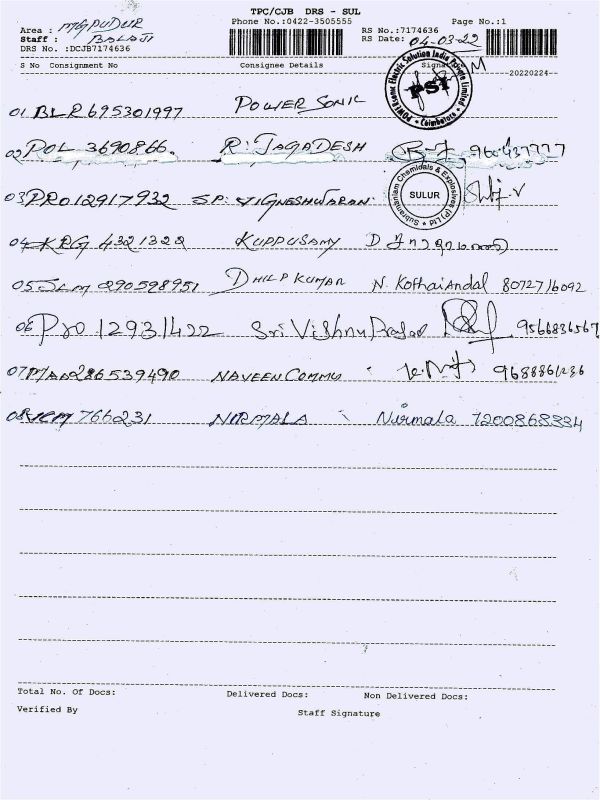 TPC/CJB DRS - SUL
Phone No.:0422-3505555 Page No.:1
Area : MGPUDUR RS No.:7174636
Staff : BALAJI RS Date: 04-03-22
DRS No. :DCJB7174636
S No Consignment No Consignee Details Signat
-20220224-
POWR Sonic Electric Solution India Private Limited
PSI
Coimbatore
01 BLR695301997 POWER SONIC
02 POL 3690866. R. JAGADESH
03 PRO12917932 SP. VIGNESHWARAN.
Subramaniam Chemicals & Explosives (P) Ltd
SULUR
04 KRG 4321322 KUPPUSAMY
05 SLM 290598951 DHILP KUMAR N. Kothaiandal 8072716092
06 Pro 12931422 Sri Vishnu Prasad 9566836567
07 MAA286539490 NAVEEN COMMU 9688861236
08 766231 NIRMALA Nirmala 7200868334
Total No. Of Docs: Delivered Docs: Non Delivered Docs:
Verified By Staff Signature